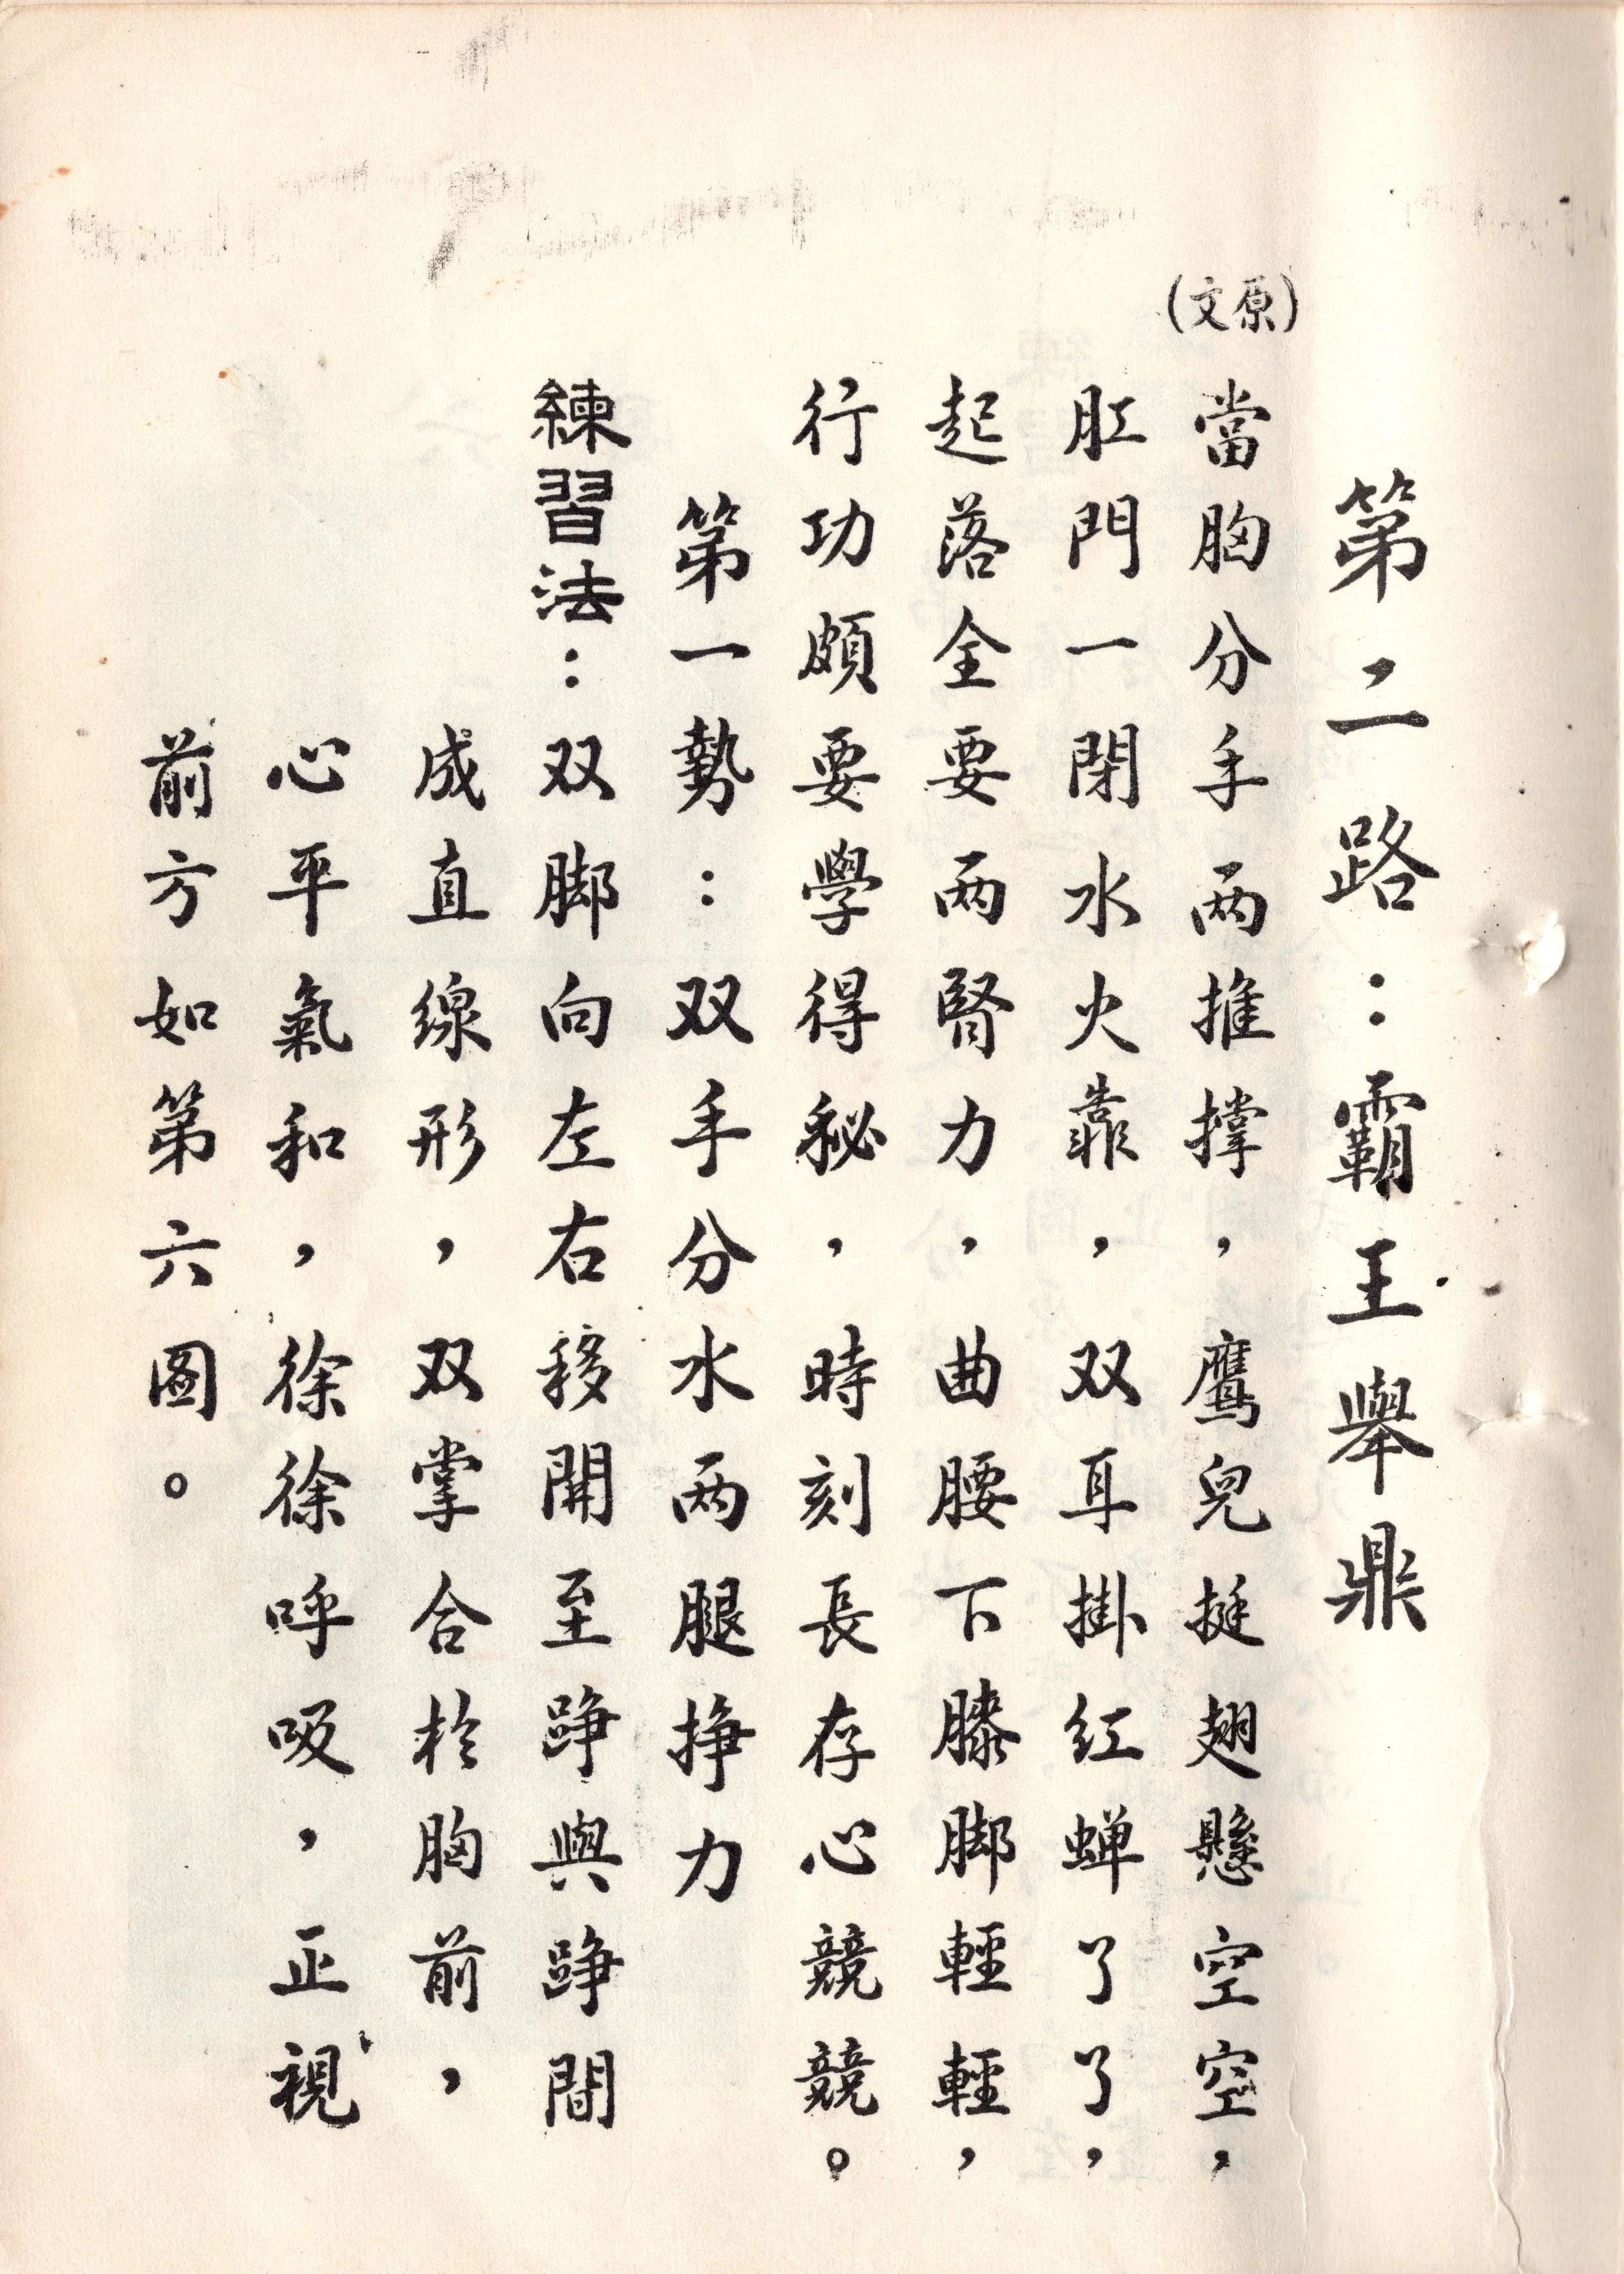 第二路：霸王舉鼎
(原文)
當胸分手两推撑，鷹兒挺翅懸空空，
肛門一閉水火靠，双耳掛红蝉了了，
起落全要两腎力，曲腰下膝脚輕輕，
行功頗要學得秘，時刻長存心競競。
第一勢：双手分水两腿挣力
練習法：双脚向左右移開至踭與踭間
成直線形，双掌合於胸前，
心平氣和，徐徐呼吸，正視
前方如第六图。